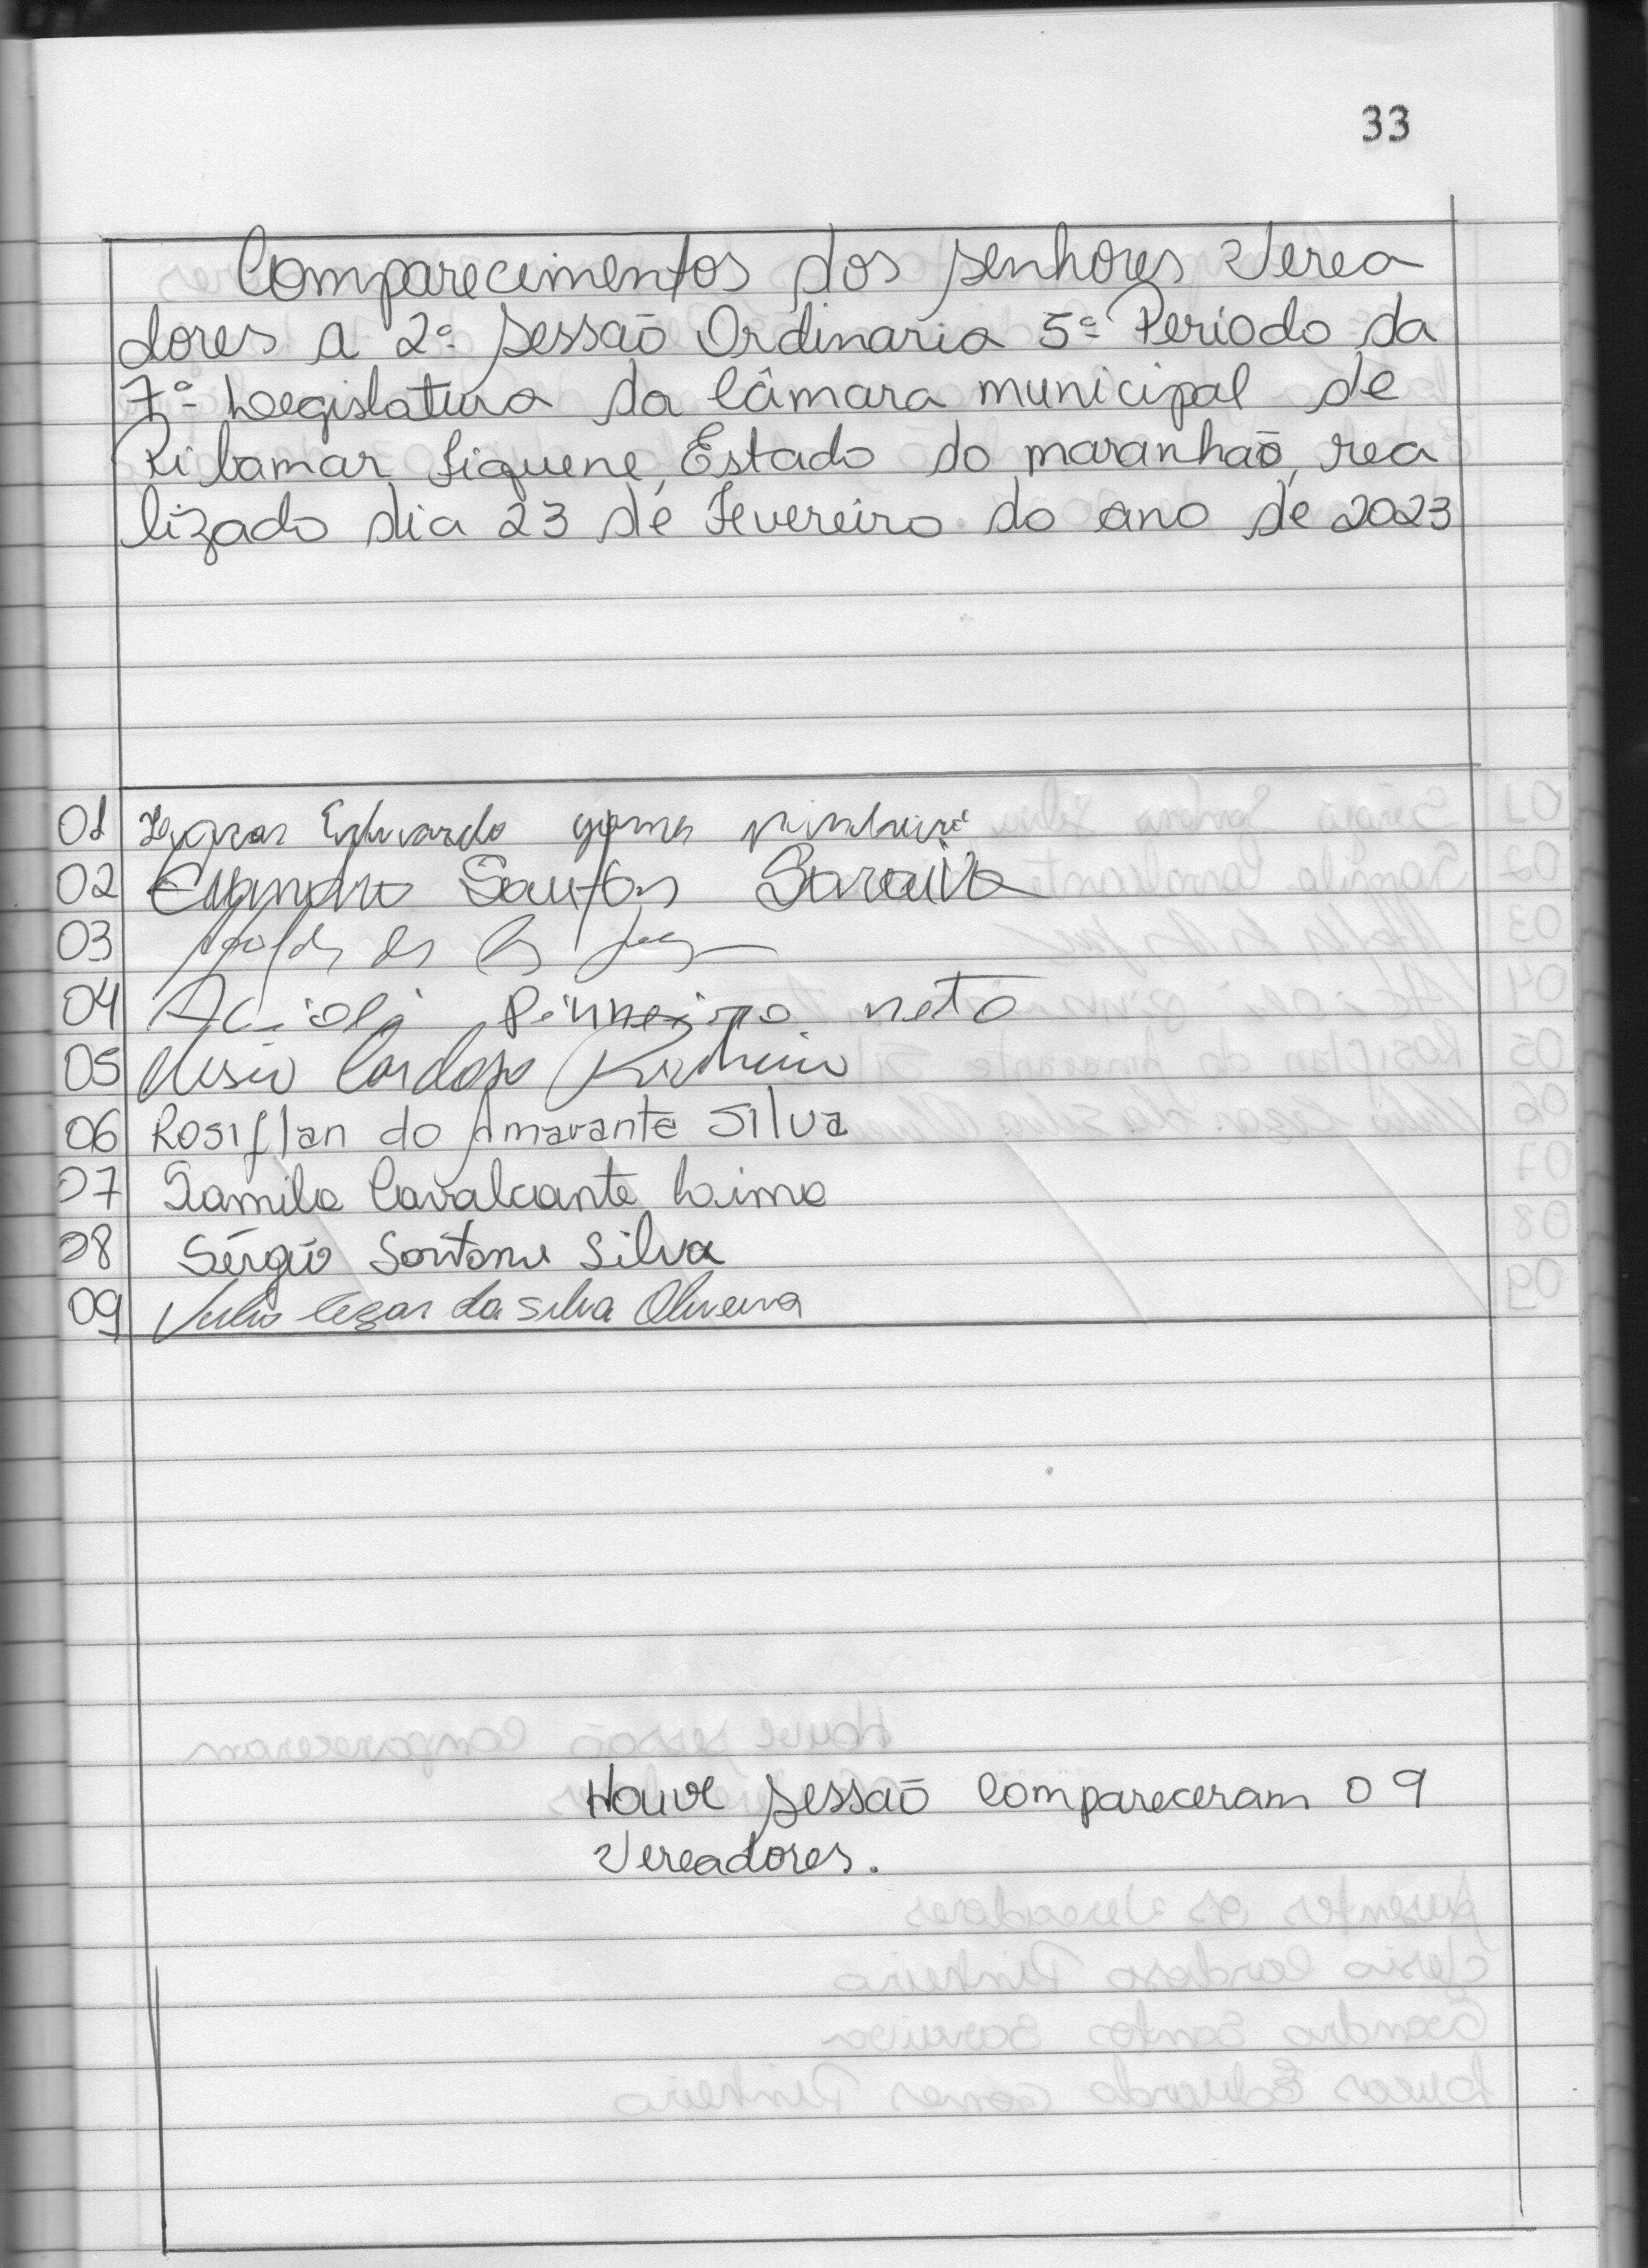 33
Comparecimentos dos senhores Verea
dores a 2ª sessão Ordinaria 5º Periodo da
7ª Legislatura da Câmara municipal de
Ribamar Fiquene, Estado do maranhão, rea
lizado dia 23 de Fevereiro do ano de 2023
01 Lucas Eduardo gomes pinheiro
02 Evandro Santos Saraiva
03
04 Acioli Pinheiro neto
05 Clesio Cardoso Pinheiro
06 Rosiflan do Amarante Silva
07 Samila Cavalcante Lima
08 Sérgio Santana Silva
09 Julio Cezar da Silva Oliveira
Houve sessão Compareceram 09
Vereadores.